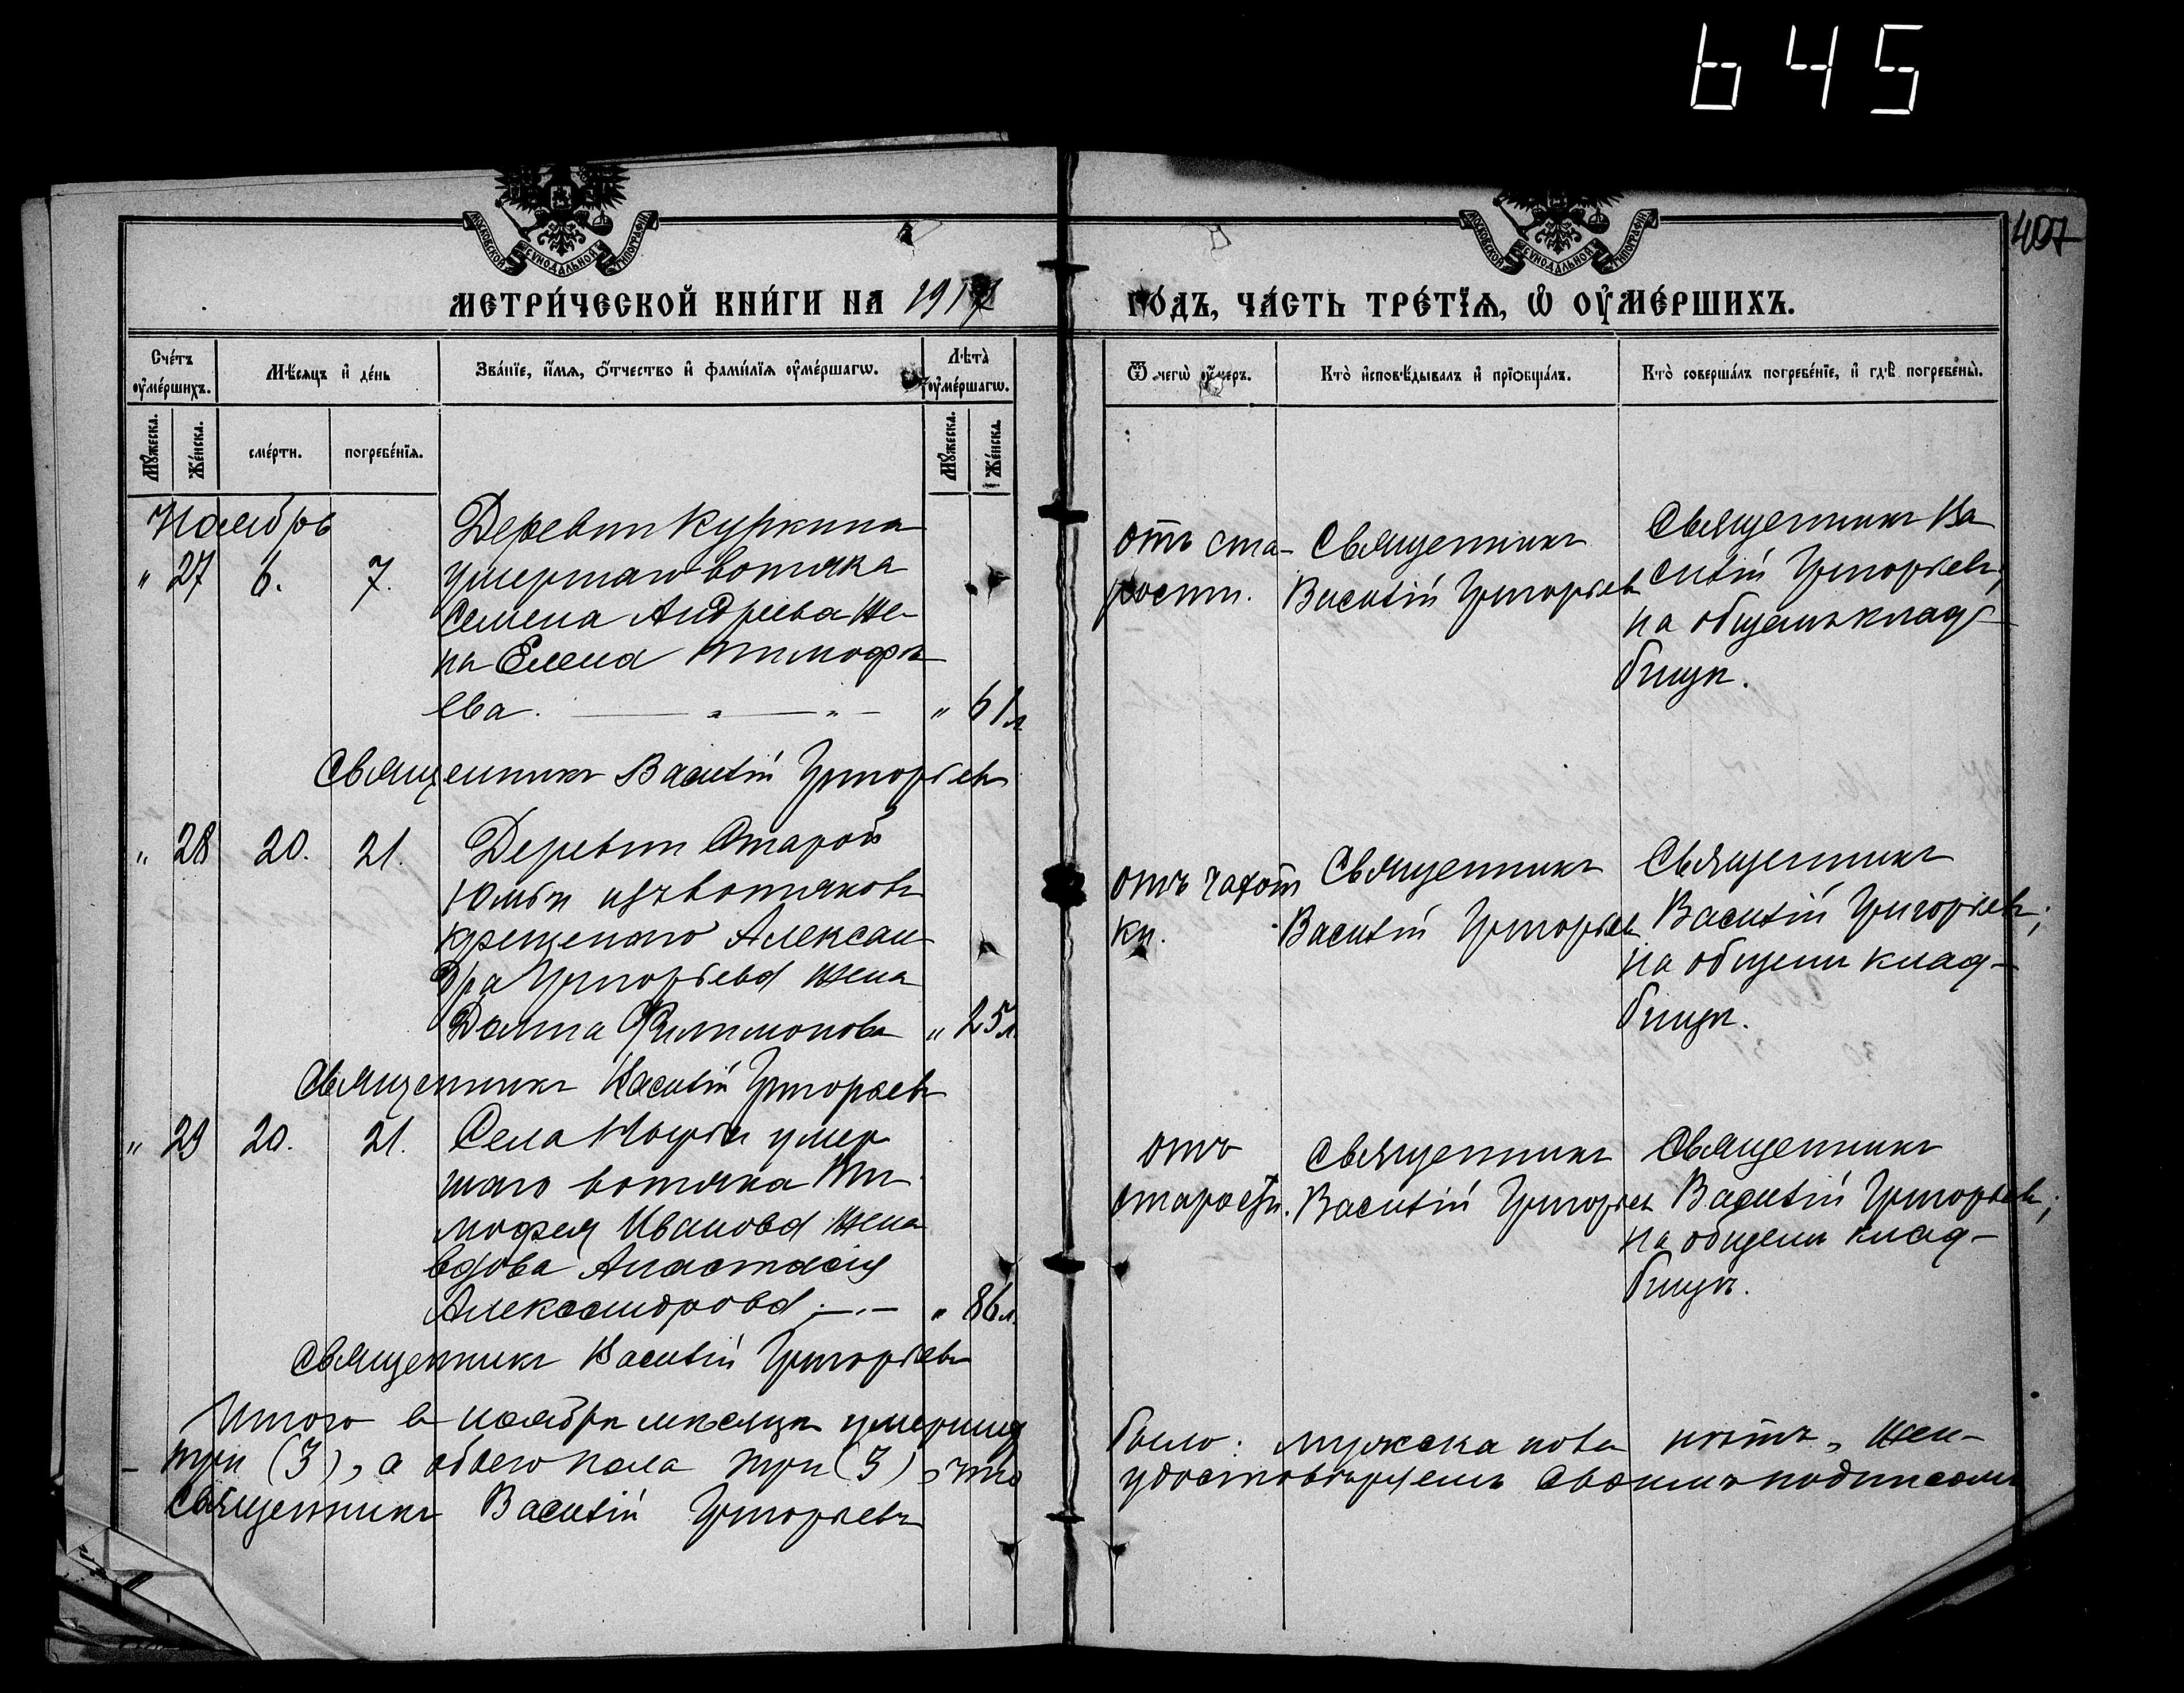 645
407
МОСКОВСКОЙ СѴНОДАЛЬНОЙ ТИПОГРАФІИ
МОСКОВСКОЙ СѴНОДАЛЬНОЙ ТИПОГРАФІИ
МЕТРИ́ЧЕСКОЙ КНИ́ГИ НА 1917 ГО́ДЪ, ЧА́СТЬ ТРЕ́ТЇѦ, Ѡ҆ ОУ҆МЕ́РШИХЪ.
Сче́тъ оу҆ме́ршихъ.
Мѣ́сяцъ и҆ де́нь
Зва́нїе, и҆́мѧ, ѻ҆́тчество и҆ фами́лїѧ оу҆ме́ршагѡ.
Лѣта̀ оу҆ме́ршагѡ.
Ѿ чегѡ̀ оу҆́меръ.
Кто̀ и҆сповѣ́дывалъ и҆ прїѡбща́лъ.
Кто̀ соверша́лъ погребе́нїе, и҆ гдѣ̀ погребены̀.
Мꙋ́жеска.
Же́нска.
сме́рти.
погребе́нїѧ.
Мꙋ́жеска.
Же́нска.
Ноябрь
" 27 6. 7.
Деревни Куркина
умершаго вотяка
Семена Андреева же-
на Елена Тимофѣ
ева. " 61 л
отъ ста-
рости.
Священникъ
Василій Григорьевъ
Священникъ Ва
силій Григорьевъ;
на общемъ клад
бищѣ.
Священникъ Василій Григорьевъ
" 28 20. 21.
Деревни Старой
Юмьи изъ вотяковъ
крещенаго Алексан
дра Григорьева жена
Домна Филимонова " 25 л.
отъ чахот
ки.
Священникъ
Василій Григорьевъ
Священникъ
Василій Григорьевъ;
на общемъ клад-
бищѣ.
Священникъ Василій Григорьевъ
" 29 20. 21.
Села умер
шаго вотяка Ти
мофея Иванова жена
вдова Анастасія
Александрова. " 86 л.
отъ
старости.
Священникъ
Василій Григорьевъ
Священникъ
Василій Григорьевъ;
на общемъ клад-
бищѣ.
Священникъ Василій Григорьевъ
Итого въ ноябрѣ мѣсяцѣ умершихъ было: мужска пола нѣтъ, жен-
– три (3), а обоего пола три (3), что удостовѣряемъ своимъ подписомъ
Священникъ Василій Григорьевъ